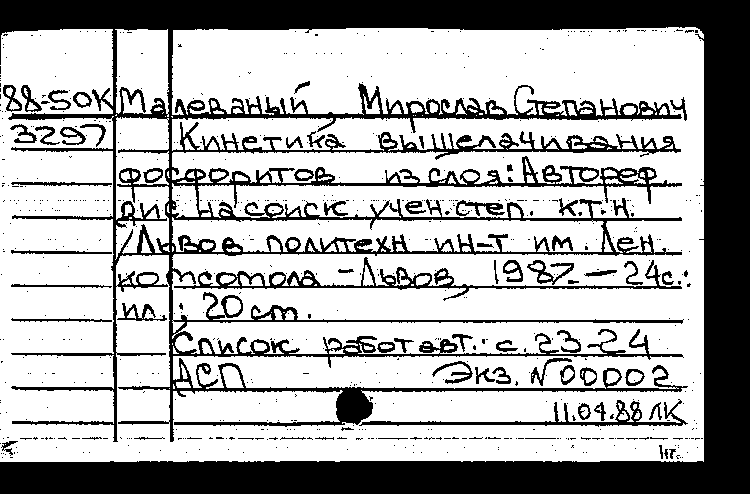 88-50К Малеваный, Мирослав Степанович
3297 Кинетика выщелачивания
фосфоритов из слоя: Автореф.
дис. на соиск. учен. степ. к.т.н.
/Львов. политехн ин-т им. Лен.
комсомола - Львов, 1987. — 24с.:
ил.; 20 см.
Список работ авт.: с. 23-24
ДСП Экз. №00002
11.04.88 ЛК